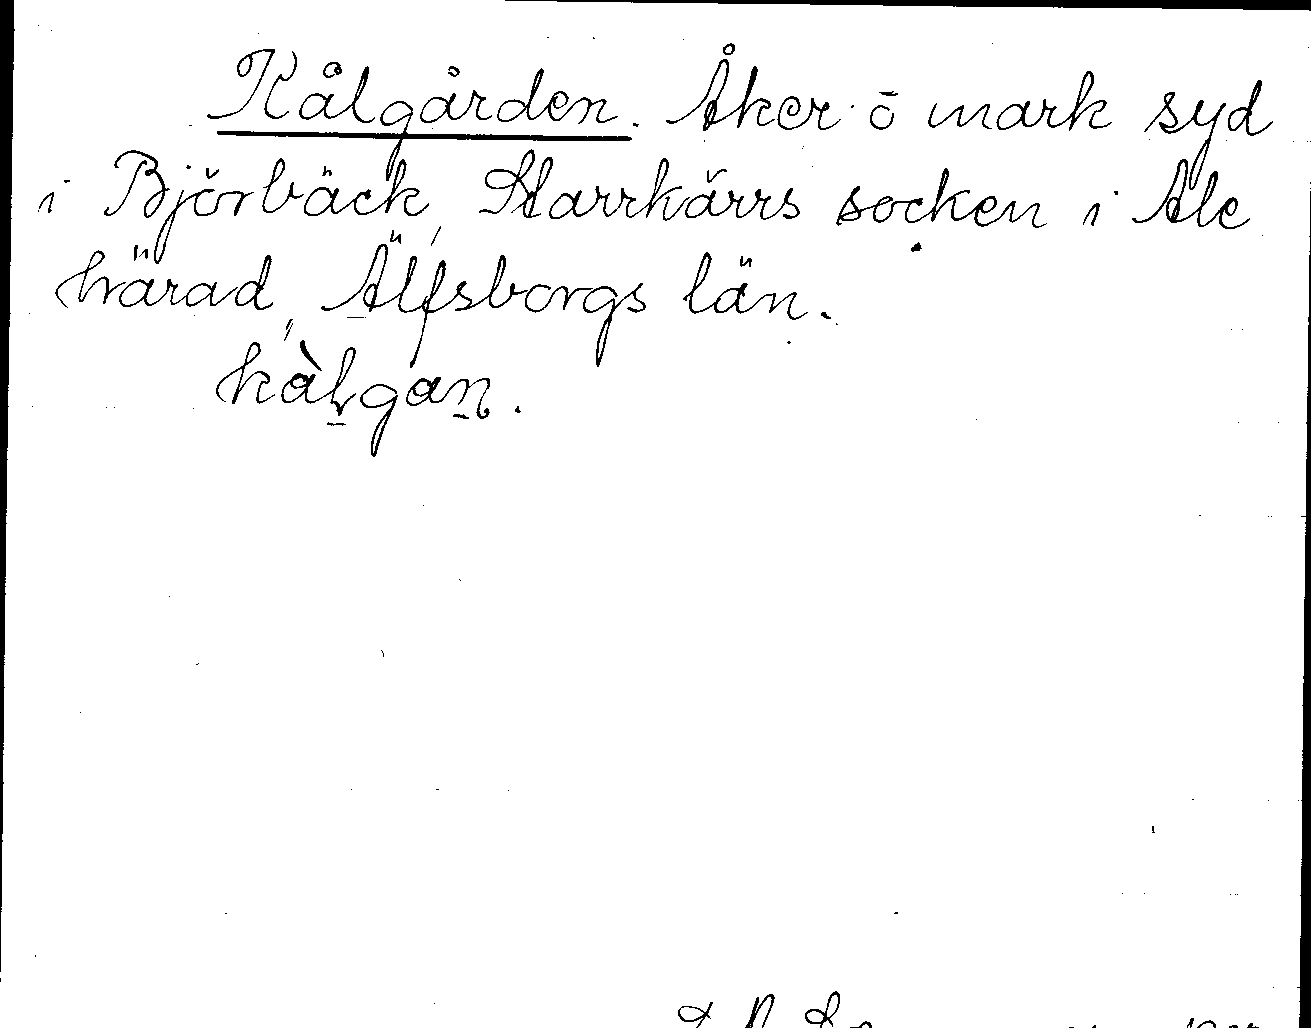 Kålgården. Åker o mark syd
i Björbäck, Starrkärrs socken i Ale
härad, Älfsborgs län.
kàlgan.